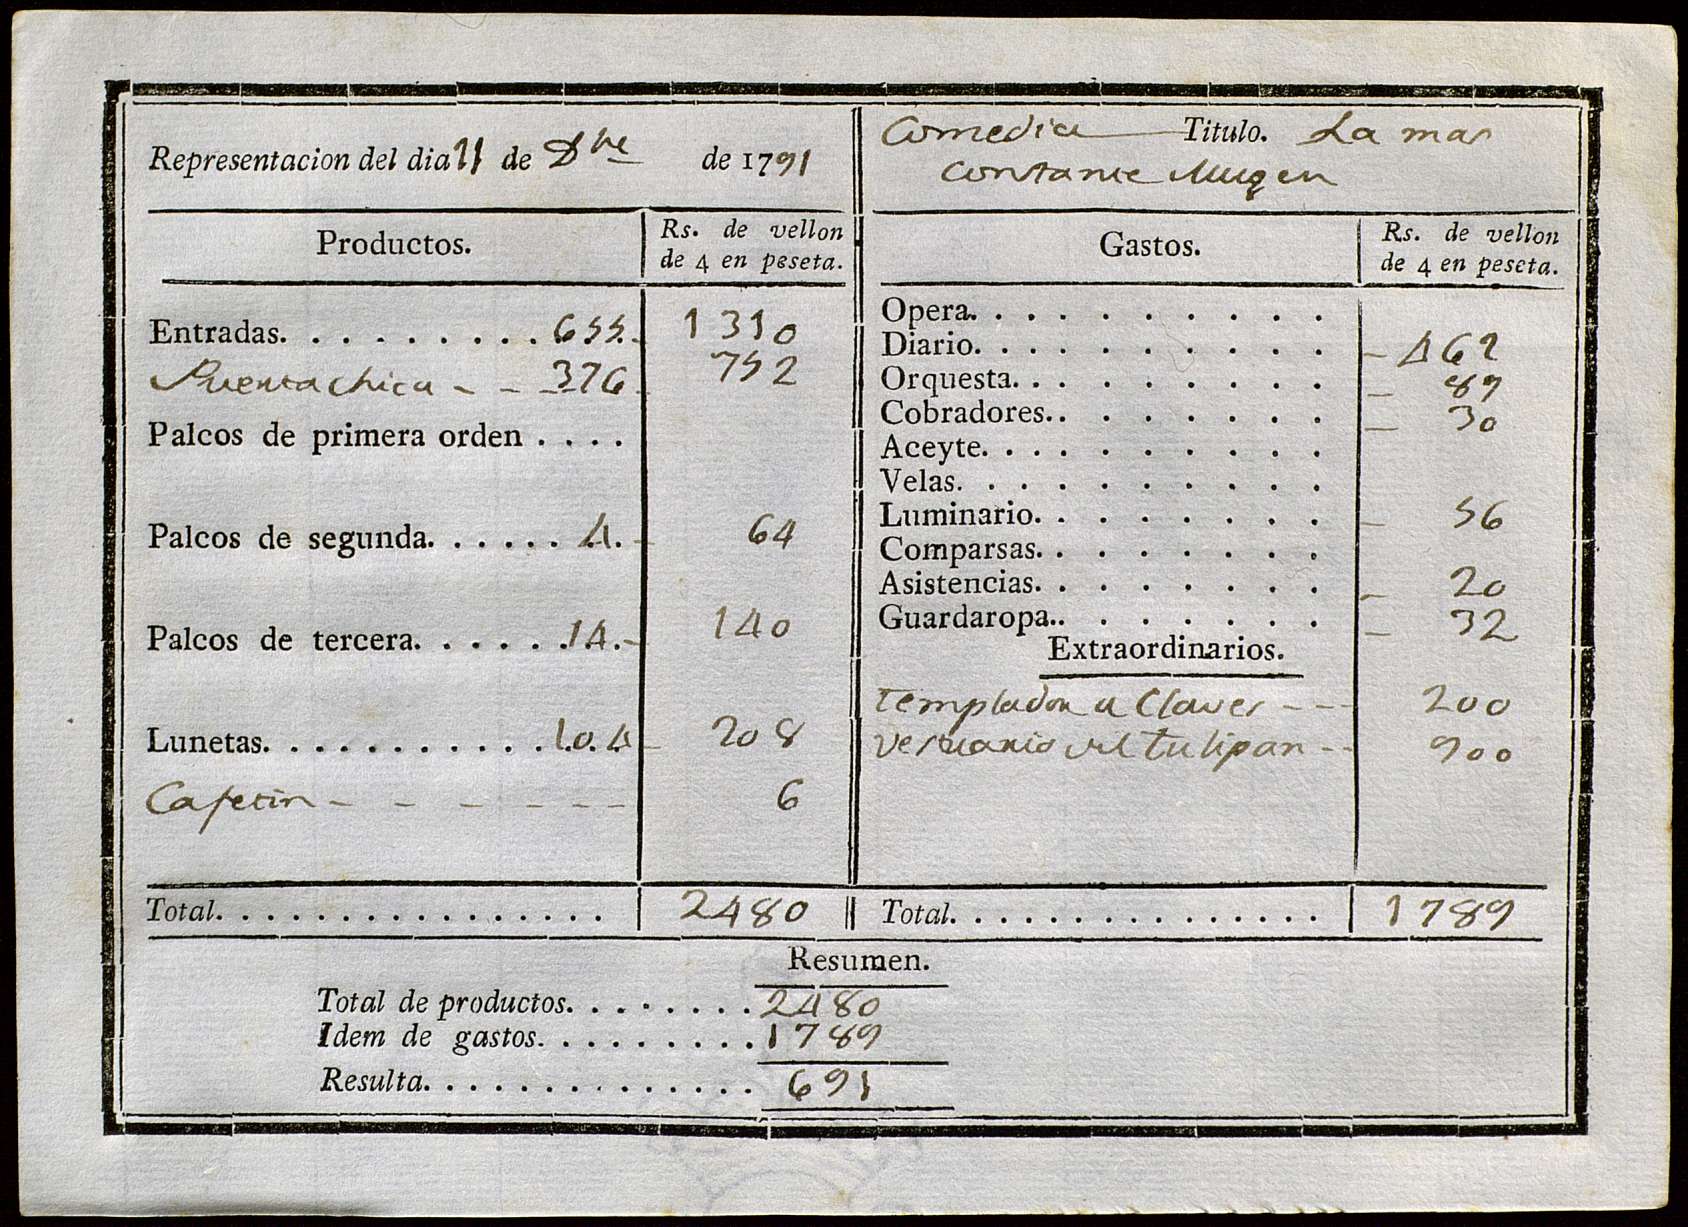 Representacion del dia 11 de Dbre de 1791
Comedia Titulo. La mas
Constante Muger
Productos. Rs. de vellon
de 4 en peseta.
Entradas. 655. 1310
Puerta chica 376 752
Palcos de primera orden
Palcos de segunda. 4. 64
Palcos de tercera. 14. 140
Lunetas. 104 208
Cafetin 6
Total. 2480
Gastos. Rs. de vellon
de 4 en peseta.
Opera.
Diario. 462
Orquesta. 89
Cobradores. 30
Aceyte.
Velas.
Luminario. 56
Comparsas.
Asistencias. 20
Guardaropa. 32
Extraordinarios.
Templador a Claver 200
del tulipan 900
Total. 1789
Resumen.
Total de productos. 2480
Idem de gastos. 1789
Resulta. 691